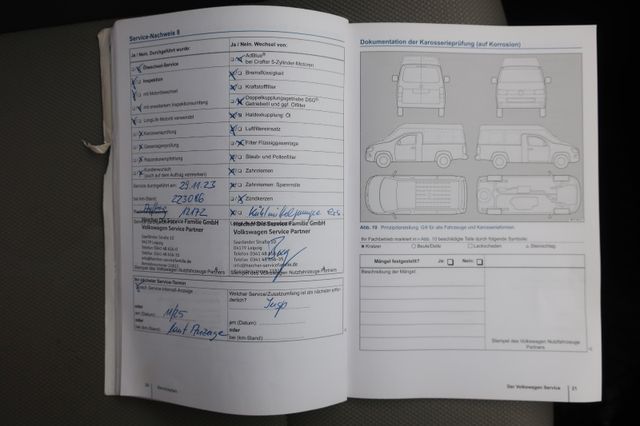 Service-Nachweis 8
Ja / Nein, Durchgeführt wurde:
Ölwechsel-Service
Inspektion
mit Motorölwechsel
mit erweitertem Inspektionsumfang
LongLife-Motoröl verwendet
Karosserieprüfung
Reparaturempfehlung
Kundenwunsch
(auch auf dem Auftrag vermerken)
Service durchgeführt am: 29.11.23
bei km-Stand: 223086
Hoecher Die Service Familie GmbH
Volkswagen Service Partner
Saarländer Straße 10
04179 Leipzig
Stempel des Volkswagen Nutzfahrzeuge Partners
Ihr nächster Service-Termin
nach Service-Intervall-Anzeige
oder
am (Datum): 11/25
oder
bei (km-Stand): laut Anzeige
20
Ja / Nein, Wechsel von:
AdBlue®
bei Crafter 5-Zylinder-Motoren
Bremsflüssigkeit
Kraftstofffilter
Doppelkupplungsgetriebe DSG®:
Getriebeöl und ggf. Ölfilter
Haldexkupplung: Öl
Luftfiltereinsatz
Filter Flüssiggasanlage
Staub- und Pollenfilter
Zahnriemen
Zahnriemen: Spannrolle
Zündkerzen
Volkswagen Service Partner
Saarländer Straße 10
04179 Leipzig
Stempel des Volkswagen Nutzfahrzeuge Partners
Welcher Service/Zusatzumfang ist als nächster erforderlich?
Insp
am (Datum):
oder
bei (km-Stand):
Dokumentation der Karosserieprüfung (auf Korrosion)
Abb. 10 Prinzipdarstellung: Gilt für alle Fahrzeuge und Karosserieformen
Ihr Fachbetrieb markiert in » Abb. 10 beschädigte Teile durch folgende Symbole:
Kratzer Beule/Delle Lackschaden Steinschlag
Mängel festgestellt? Ja: Nein:
Beschreibung der Mängel:
Stempel des Volkswagen Nutzfahrzeuge
Partners
Der Volkswagen Service 21